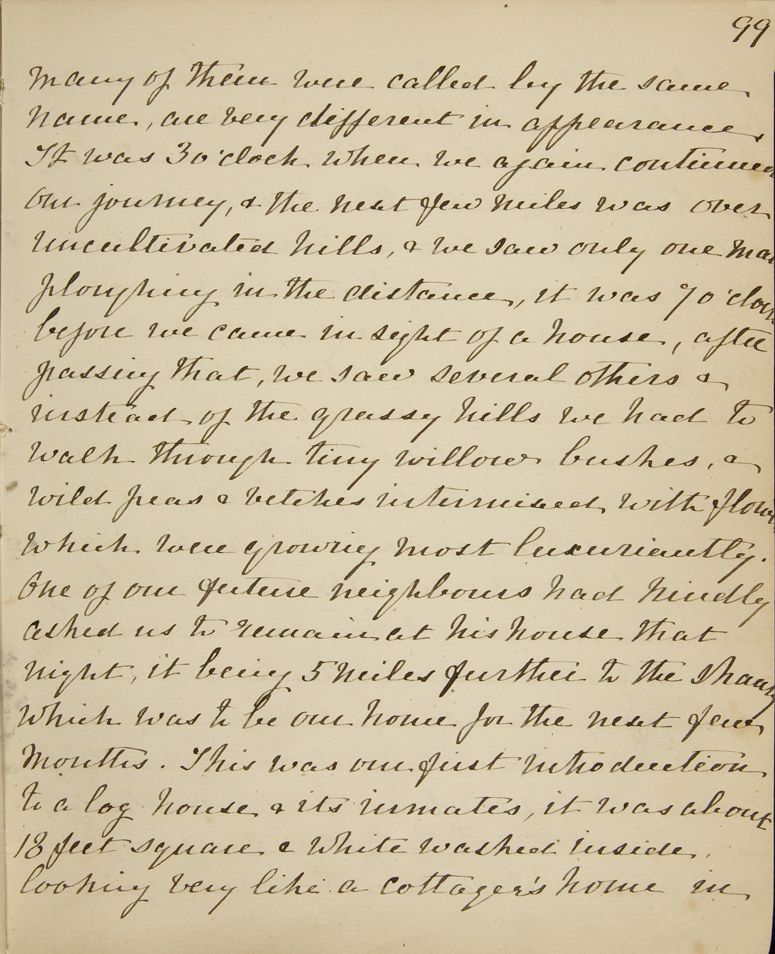 99
many of them were called by the same
name, are very different in appearance,
It was 3 o'clock when we again continued
our journey, & the next few miles was over
uncultivated hills, & we saw only one man
ploughing in the distance, it was 7 o'clock
before we came in sight of a house, after
passing that, we saw several others &
instead of the grassy hills we had to
walk through tiny willow bushes, &
wild peas & vetches intermixed with flowers
which were growing most luxuriantly.
One of our future neighbours had kindly
asked us to remain at his house that
night, it being 5 miles further to the shanty
which was to be our home for the next few
months. This was our first introduction
to a log house & its inmates, it was about
18 feet square & white washed inside,
looking very like a cottager's home in